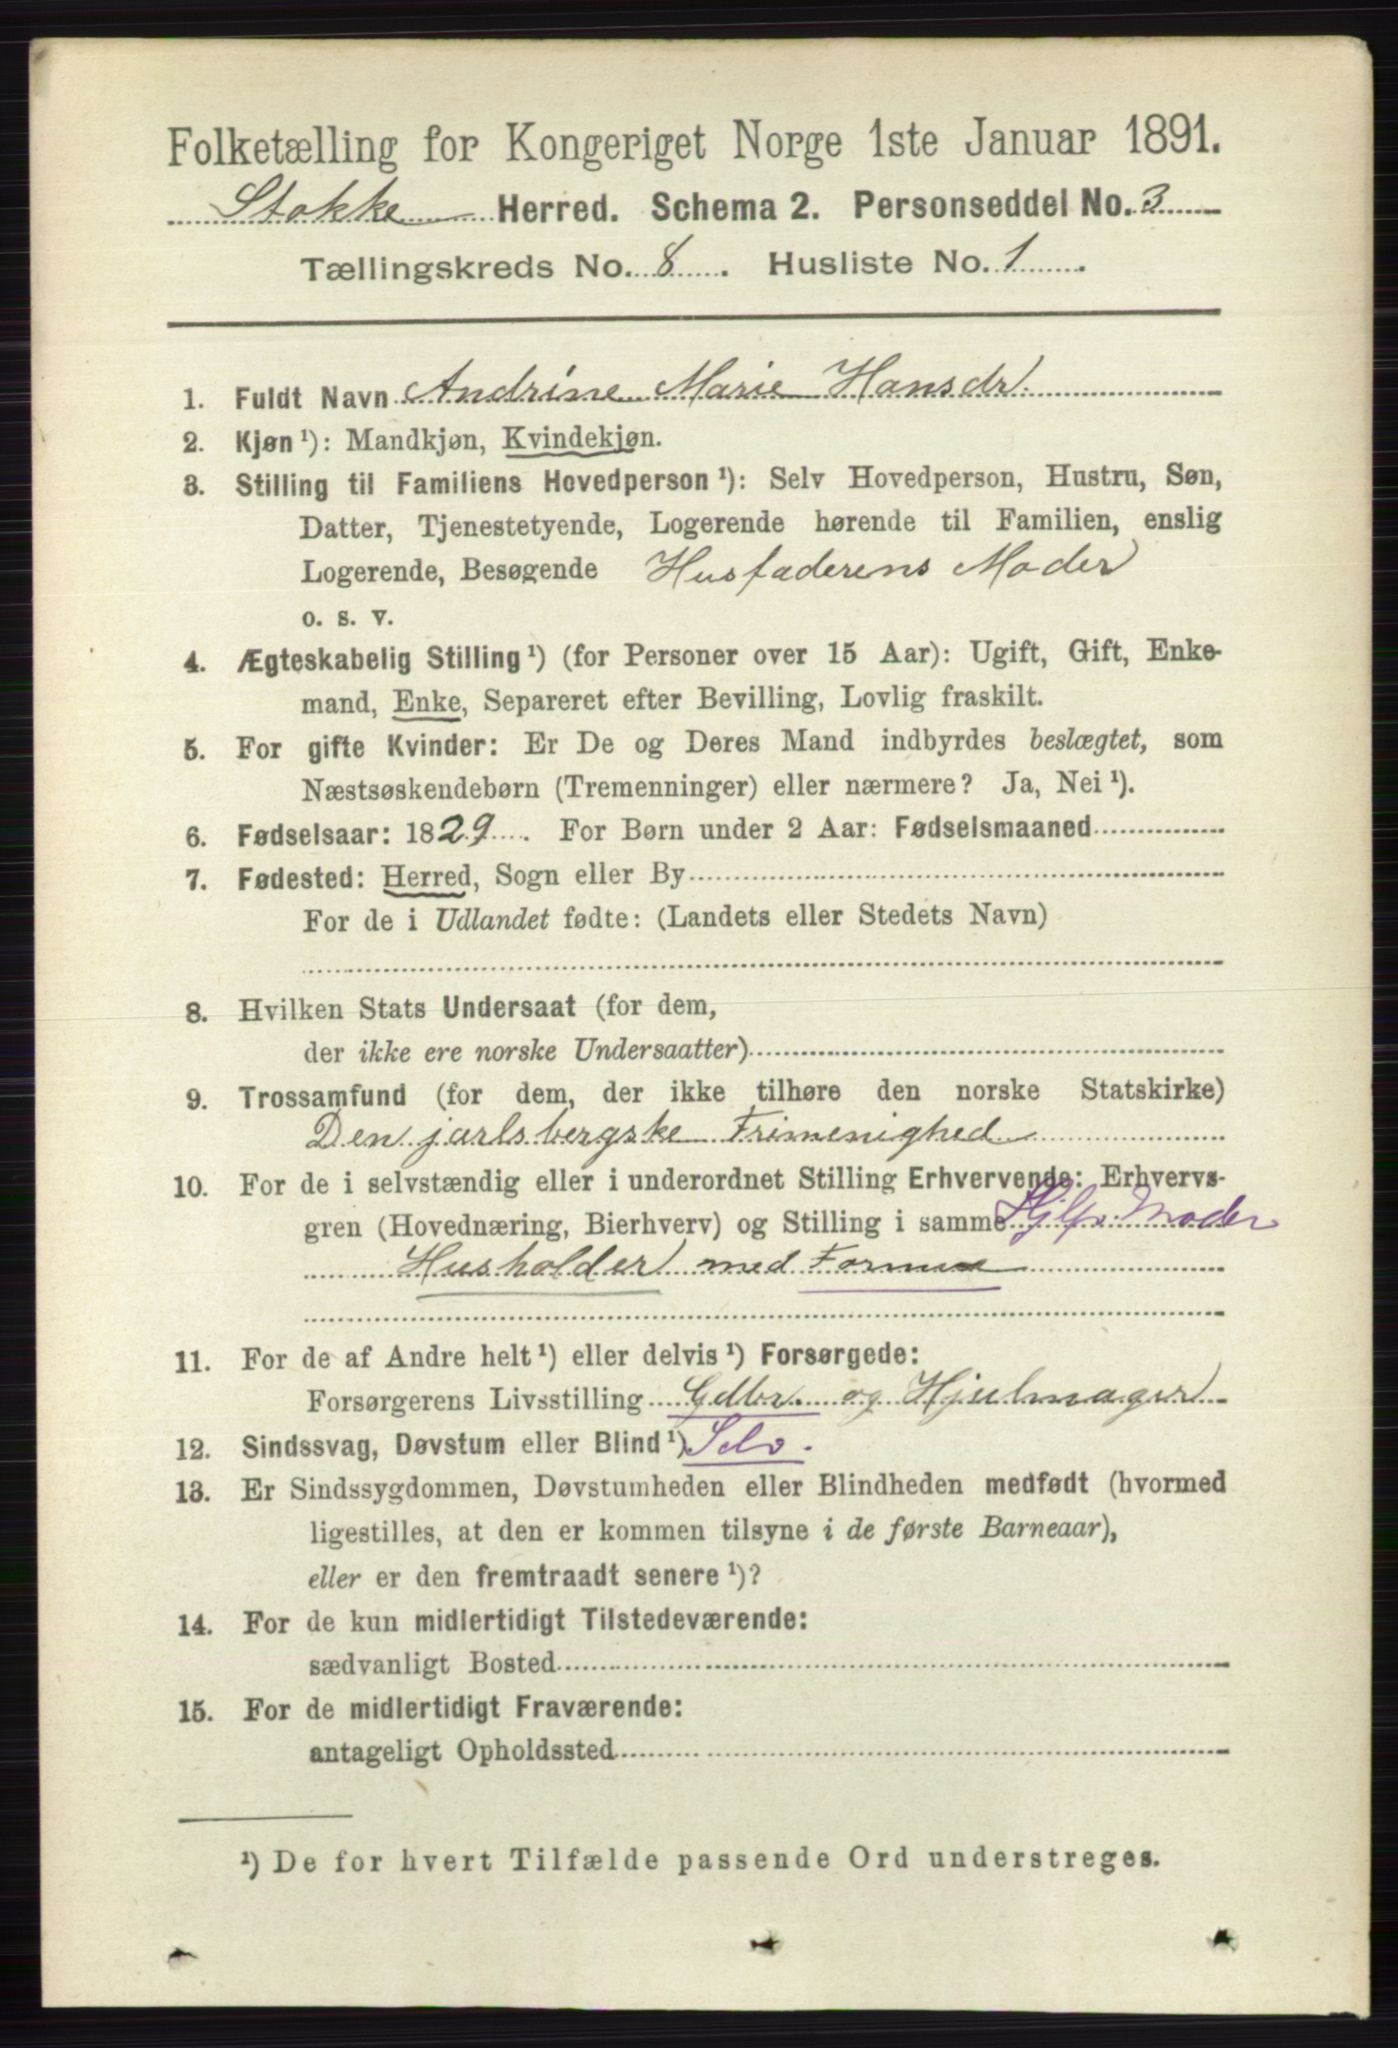 Folketælling for Kongeriget Norge 1ste Januar 1891.
Stokke Herred. Schema 2. Personseddel No. 3
Tællingskreds No. 8. Husliste No. 1.
1. Fuldt Navn Andrine Marie Hansdr.
2. Kjøn ¹): Mandkjøn, Kvindekjøn.
3. Stilling til Familiens Hovedperson ¹): Selv Hovedperson, Hustru, Søn,
Datter, Tjenestetyende, Logerende hørende til Familien, enslig
Logerende, Besøgende Husfaderens Moder
o. s. v.
4. Ægteskabelig Stilling ¹) (for Personer over 15 Aar): Ugift, Gift, Enke-
mand, Enke, Separeret efter Bevilling, Lovlig fraskilt.
5. For gifte Kvinder: Er De og Deres Mand indbyrdes beslægtet, som
Næstsøskendebørn (Tremenninger) eller nærmere? Ja, Nei ¹).
6. Fødselsaar: 1829. For Børn under 2 Aar: Fødselsmaaned
7. Fødested: Herred, Sogn eller By
For de i Udlandet fødte: (Landets eller Stedets Navn)
8. Hvilken Stats Undersaat (for dem,
der ikke ere norske Undersaatter)
9. Trossamfund (for dem, der ikke tilhøre den norske Statskirke)
Den jarlsbergske Frimenighed
10. For de i selvstændig eller i underordnet Stilling Erhvervende: Erhvervs-
gren (Hovednæring, Bierhverv) og Stilling i samme Hjlp. Moder
Husholder med Formue
11. For de af Andre helt ¹) eller delvis ¹) Forsørgede:
Forsørgerens Livsstilling Gdbr. og Hjulmager
12. Sindssvag, Døvstum eller Blind ¹) Selv.
13. Er Sindssygdommen, Døvstumheden eller Blindheden medfødt (hvormed
ligestilles, at den er kommen tilsyne i de første Barneaar),
eller er den fremtraadt senere ¹)?
14. For de kun midlertidigt Tilstedeværende:
sædvanligt Bosted
15. For de midlertidigt Fraværende:
antageligt Opholdssted
¹) De for hvert Tilfælde passende Ord understreges.